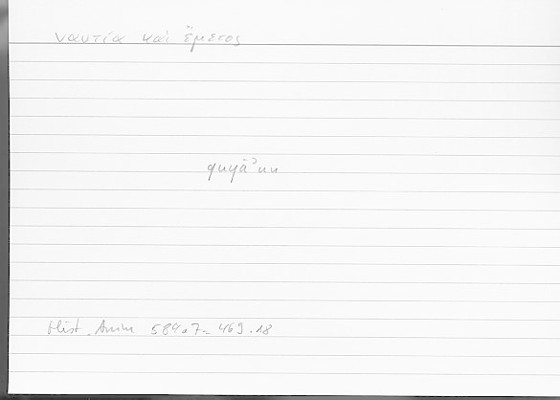 ναυτία καὶ ἔμετος
quyāʾun
Hist. Anim 584a7 = 469.18